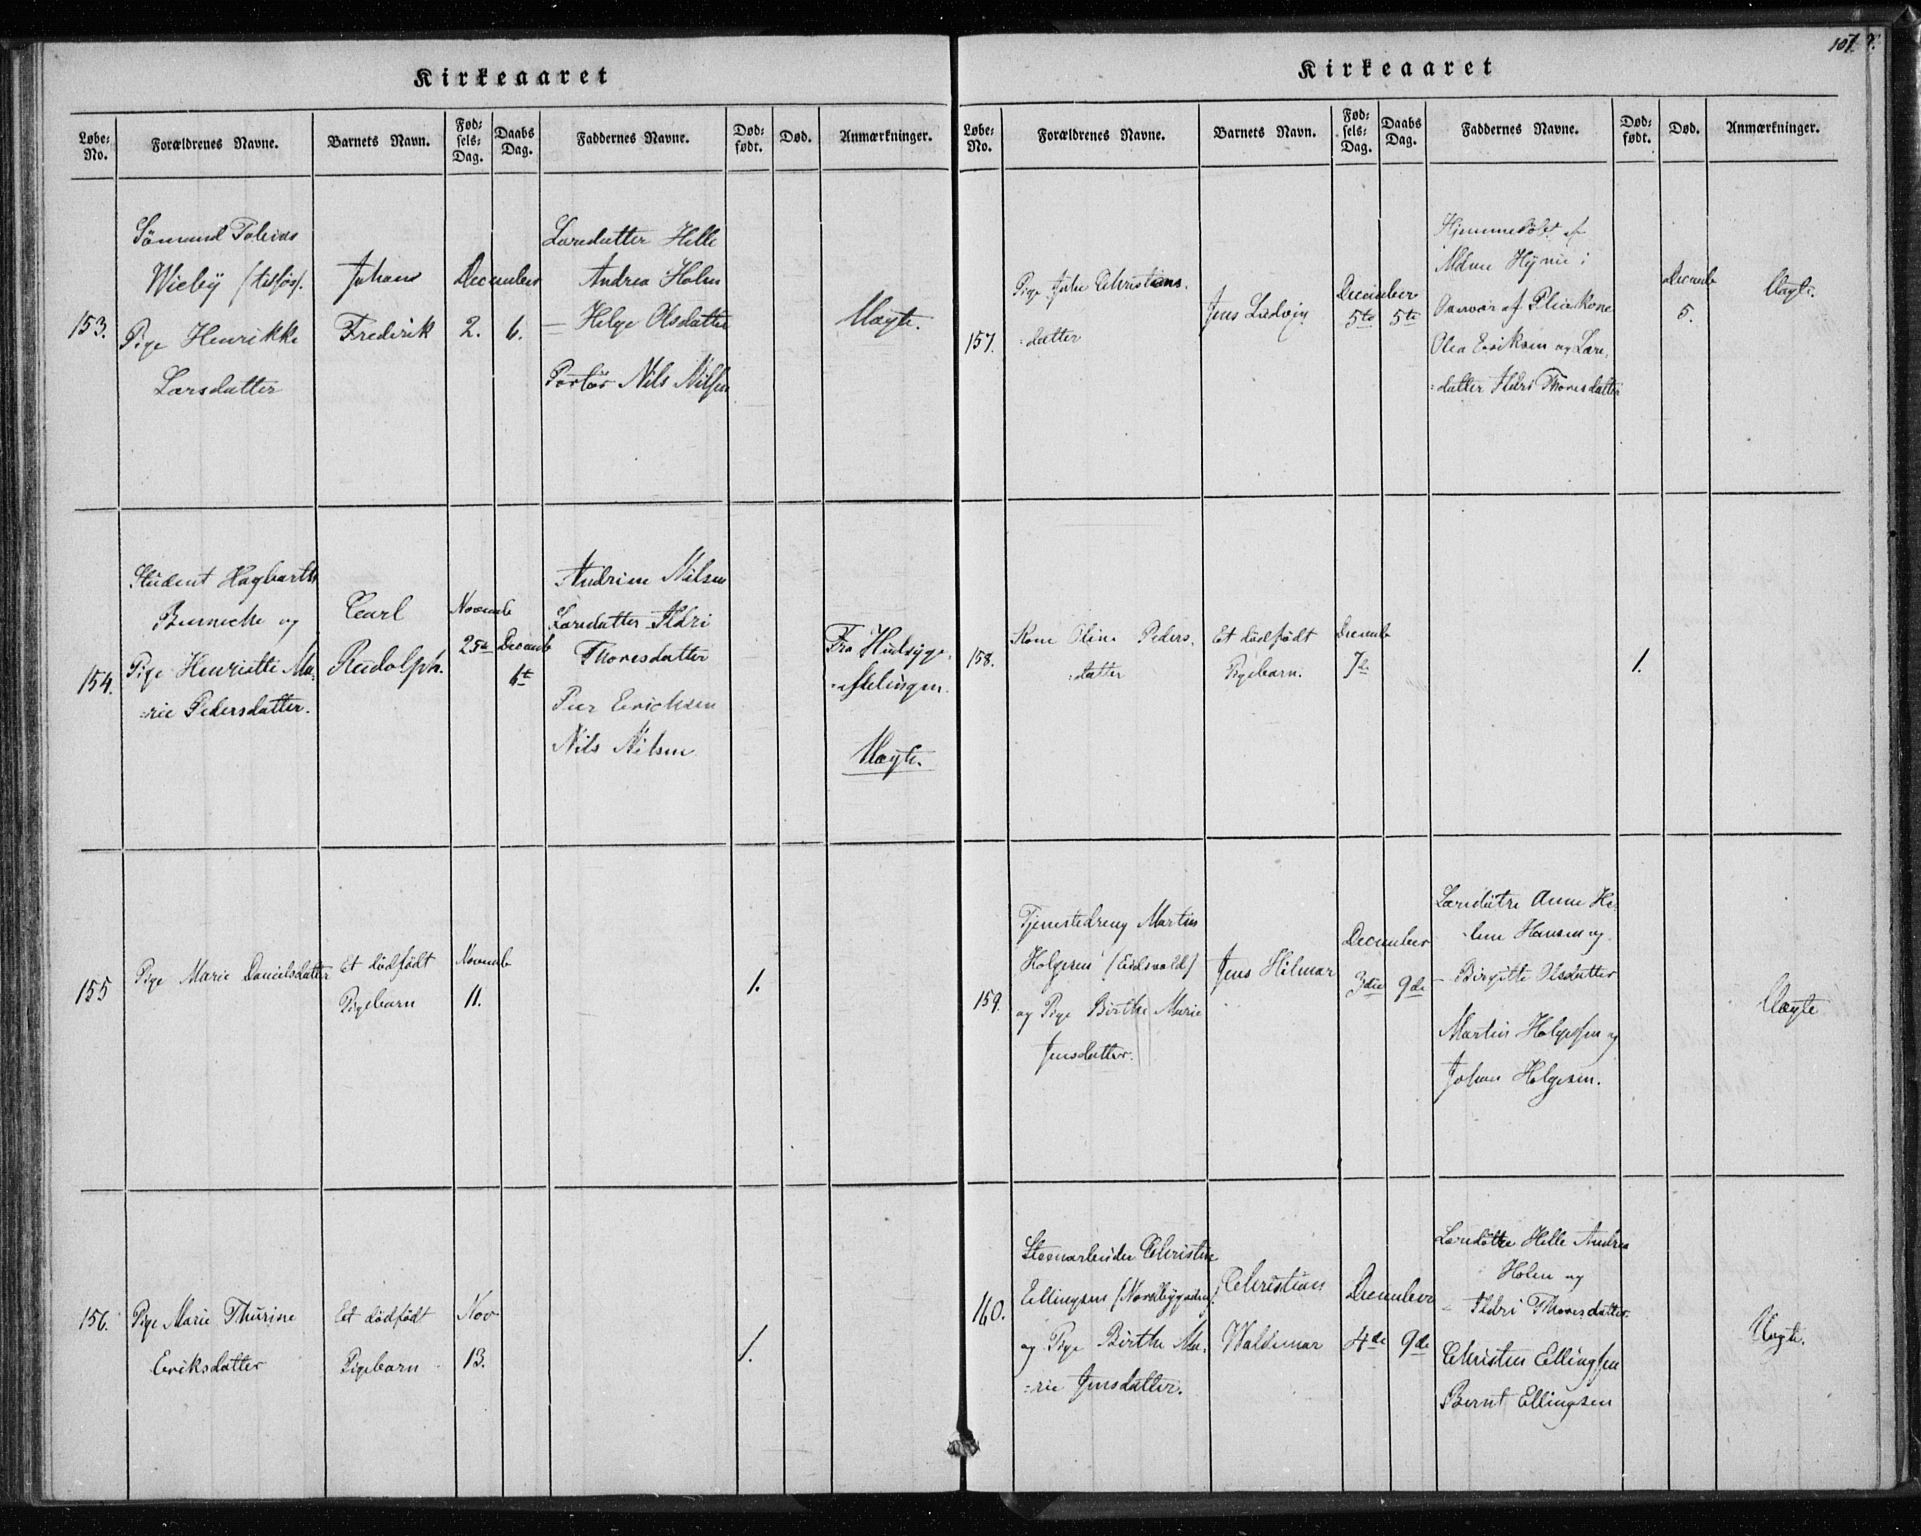 107.
Kirkeaaret
Løbe-No. Forældrenes Navne. Barnets Navn. Fødsels-Dag. Daabs Dag. Faddernes Navne. Dødfødt. Død. Anmærkninger.
153.
Sömund Tobias
Wieby
Pige Henrikke
Larsdatter
Johan
Frederik
December
2. 6.
Læredatter Helle
Andrea Holm
— Helge Olsdatter
Portör Nils Nilsen
Uægte.
154.
Student Hagbarth
og
Pige Henriette Ma-
-rie Pedersdatter.
Carl
Rudolph.
Novemb
25de
Decemb
6te
Andrine Nilsen
Læredatter Ildri
Thoresdatter
Peer Erichsen
Nils Nilsen
Fra Hudsyge-
-afdelingen.
Uægte.
155
Pige Marie Danielsdatter
Et dödfödt
Pigebarn
Novemb
11.
1.
156.
Pige Marie Thurine
Eriksdatter
Et dödfödt
Pigebarn
Nov
13.
1.
Kirkeaaret
Løbe-No. Forældrenes Navne. Barnets Navn. Fødsels-Dag. Daabs Dag. Faddernes Navne. Dødfødt. Død. Anmærkninger.
157.
Pige Julie Christians-
-datter
Jens Ludvig
December
5te 5te
Hjemmedöbt af
Overvær af Pleiekone
Olea Eriksen og Lære-
-datter Ildri Thoresdatter
Decemb
5.
Uægte.
158.
Kone Oline Peders-
-datter
Et dödfödt
Pigebarn.
Decemb
7de
1.
159.
Tjenestedreng Martin
Holgersen (Eidsvold)
og Pige Birthe Marie
Jensdatter.
Jens Hilmar
December
3die 9de
Læredötre Anne He-
-lene Hansen og
— Birgitte Olsdatter
Martin Holgersen og
Johan Holgesen.
Uægte
160.
Christen
Ellingsen
og Pige Birthe Ma-
-rie Jensdatter.
Christian
Waldemar
December
4de 9de
Læredöttre Helle Andrea
Holm og
— Ildri Thoresdatter
Christen Ellingsen
Bernt Ellingsen
Uægte.